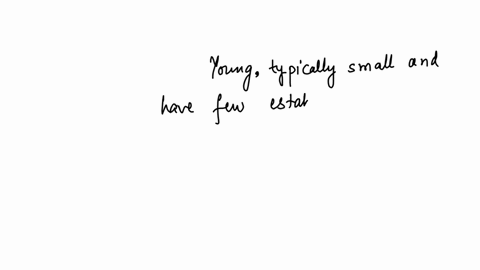 Young, typically small and
have few estat